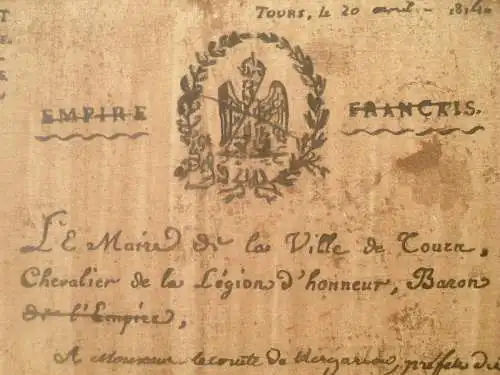 Tours, le 20 avril 1814.
EMPIRE FRANCEIS.
LE Maire de la Ville de Tours,
Chevalier de la Légion d'honneur, Baron
de l'Empire,
A Monsieur le comte de Kergariou, préfet